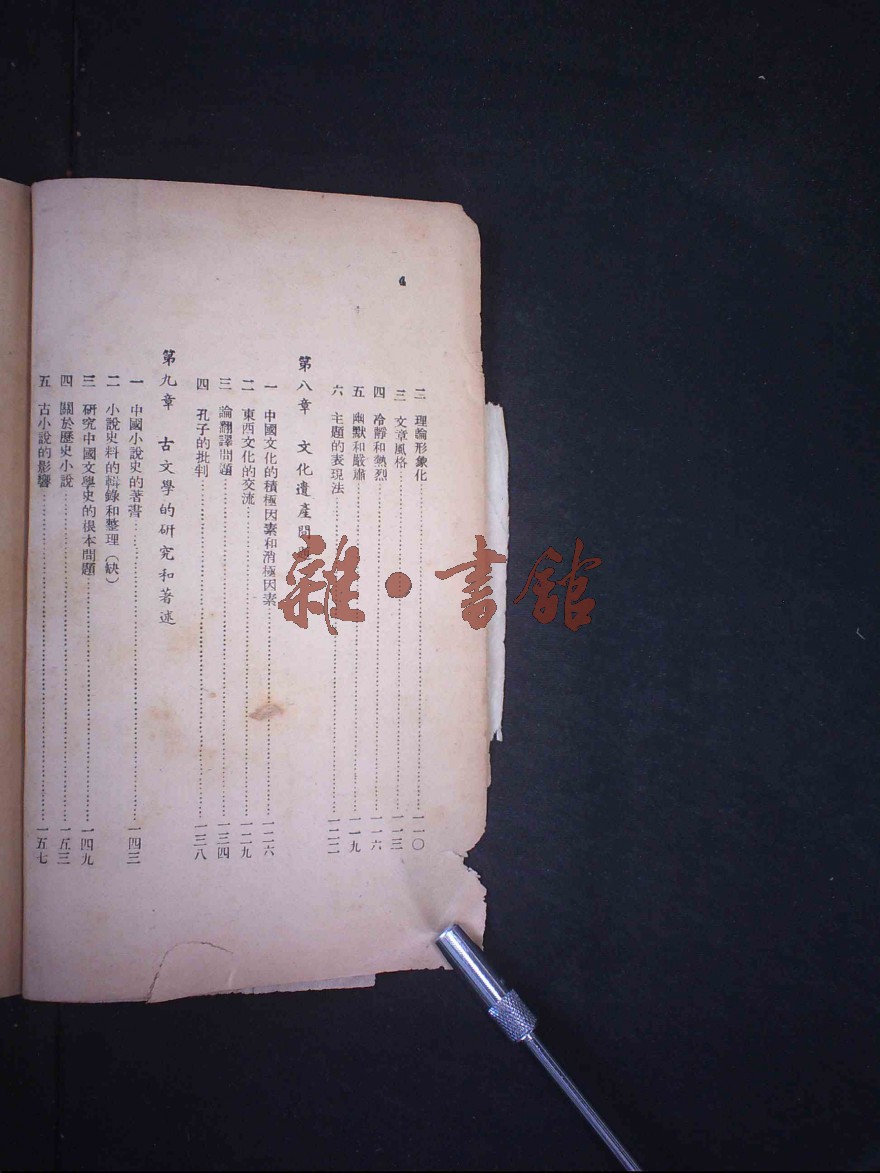 二 理論形象化 一一〇
三 文章風格 一一三
四 冷靜和熱烈 一一六
五 幽默和嚴肅 一一九
六 主題的表現法 一二二
第八章 文化遺產問題
一 中國文化的積極因素和消極因素 一二六
二 東西文化的交流 一二九
三 論翻譯問題 一三四
四 孔子的批判 一三八
第九章 古文學的研究和著述
一 中國小說史的著書 一四三
二 小說史料的輯錄和整理（缺）
三 研究中國文學史的根本問題 一四九
四 關於歷史小說 一五三
五 古小說的影響 一五七
雜·書館